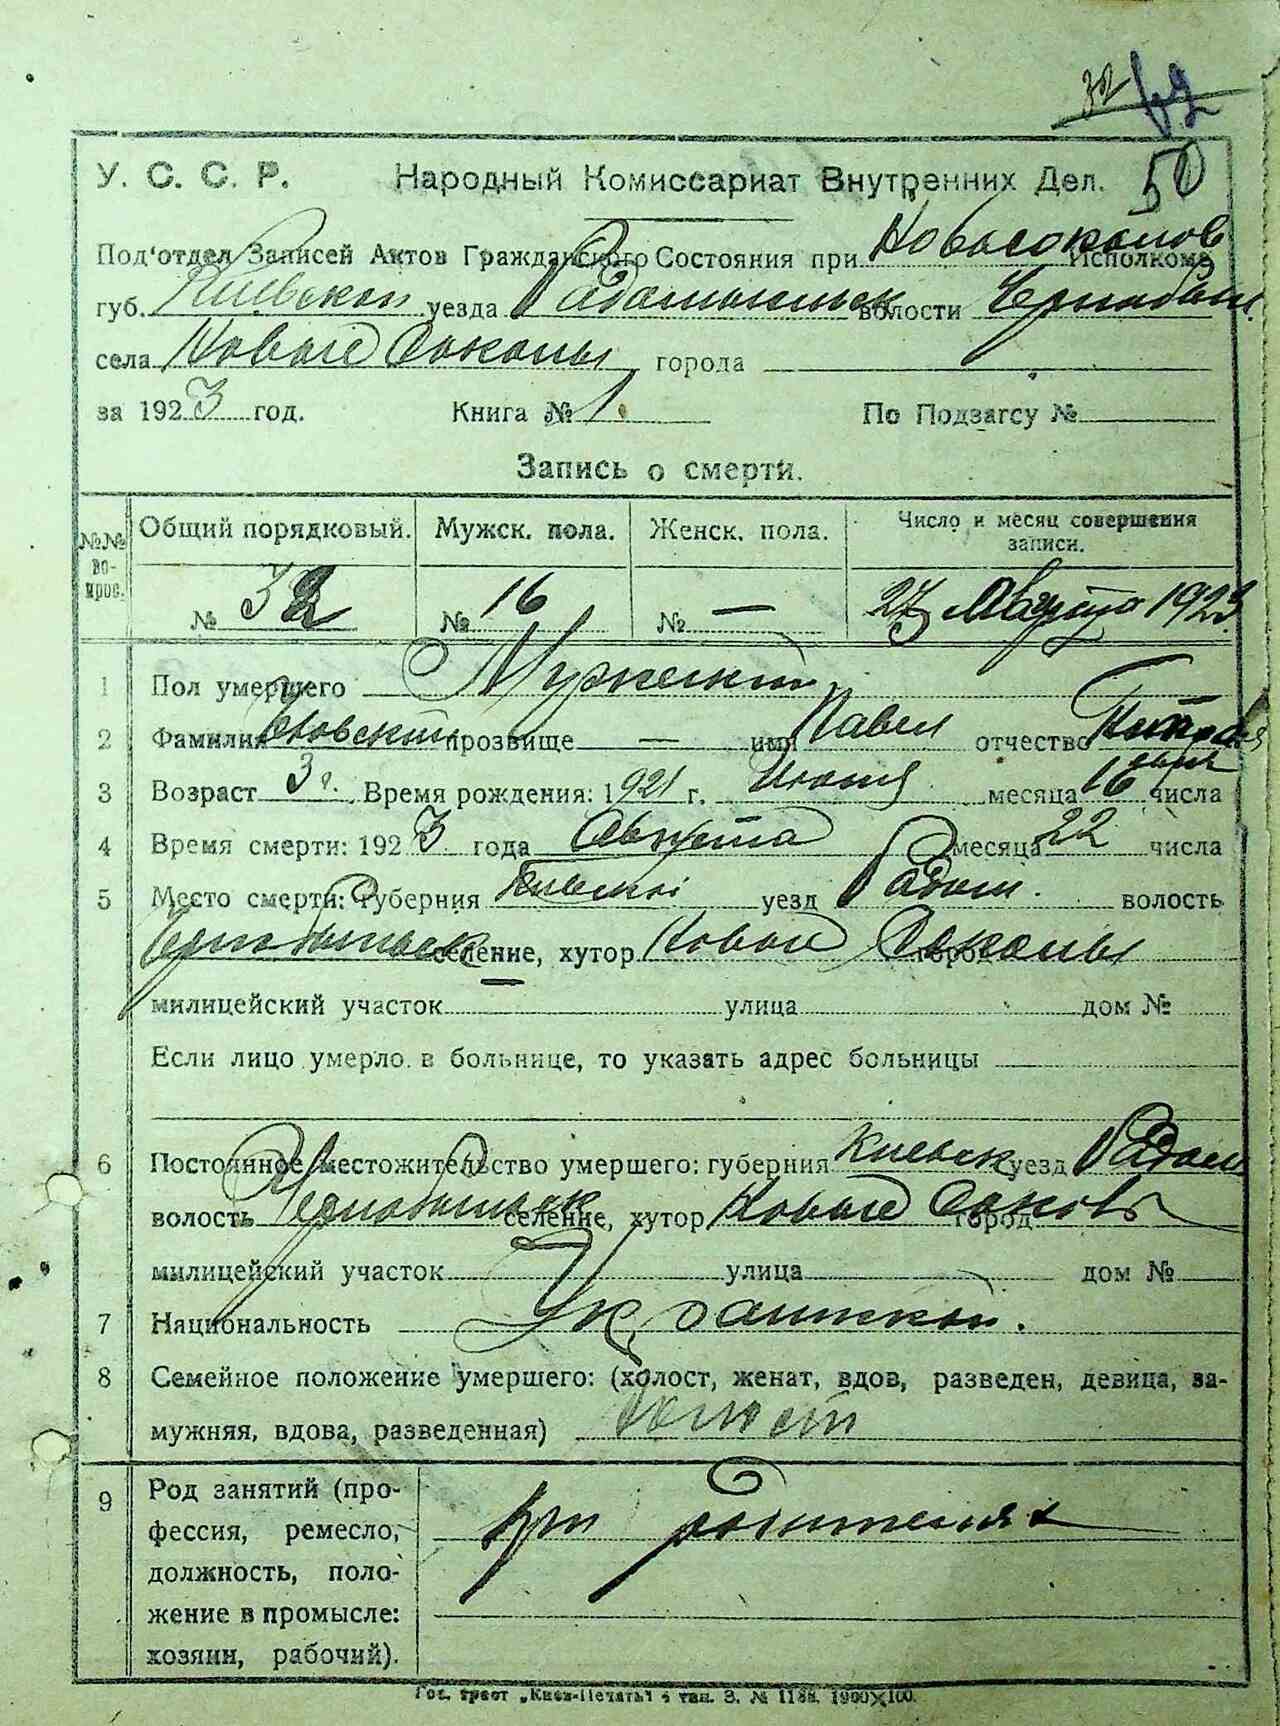 32 62
У. С. С. Р. Народный Комиссариат Внутренних Дел. 50
Под'отдел Записей Актов Гражданского Состояния при Новосоколов Исполкоме
губ. Киевской уезда Радомысльск волости
села Новые Соколы города
за 1923 год. Книга № 1. По Подзагсу №
Запись о смерти.
№№ вопрос. Общий порядковый. Мужск. пола. Женск. пола. Число и месяц совершения записи.
№ 32 № 16 № — 27 Августа 1923
1 Пол умершего Мужской
2 Фамилия прозвище — имя Павел отчество
3 Возраст 3 г. Время рождения: 1921 г. месяца 16 числа
4 Время смерти: 1923 года Августа месяца 22 числа
5 Место смерти: Губерния Киевской уезд Радом. волость
селение, хутор Новые Соколы город
милицейский участок улица дом №
Если лицо умерло в больнице, то указать адрес больницы
6 Постоянное местожительство умершего: губерния Киевск уезд Радом
волость селение, хутор Новые Соколы город
милицейский участок улица дом №
7 Национальность
8 Семейное положение умершего: (холост, женат, вдов, разведен, девица, за-
мужняя, вдова, разведенная) Холост
9 Род занятий (про-
фессия, ремесло, при родителях
должность, поло-
жение в промысле:
хозяин, рабочий).
Гос. трест „Киев-Печать" 4 тип. З. № 1188. 1900×100.